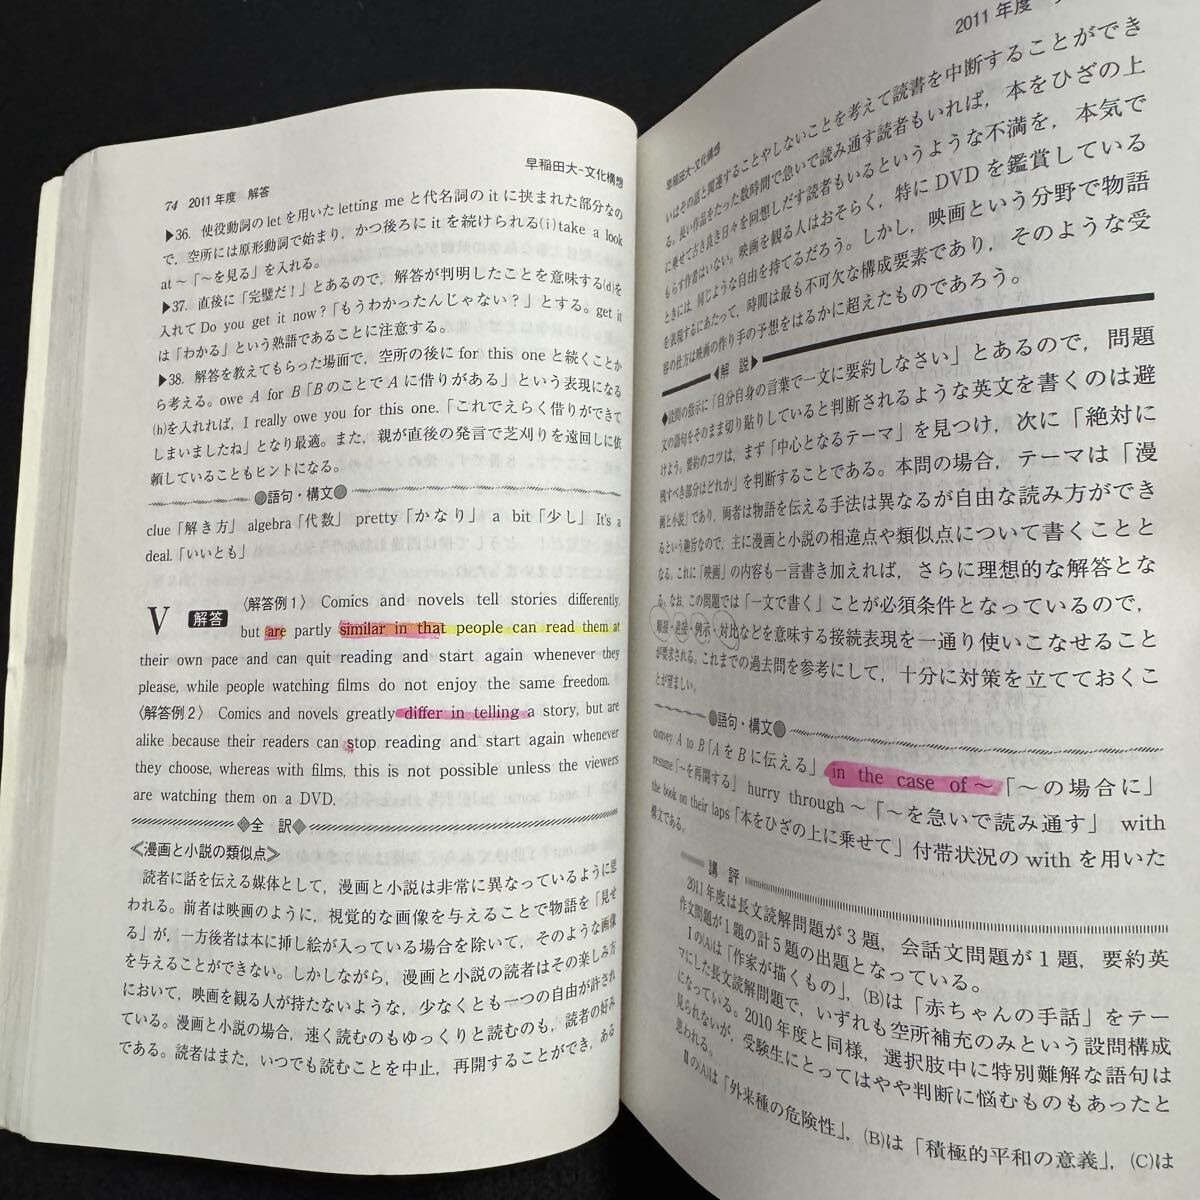 74 2011年度 解答
早稲田大-文化構想
▶36. 使役動詞の let を用いた letting me と代名詞の it に挟まれた部分なの
で，空所には原形動詞で始まり，かつ後ろに it を続けられる(i)take a look
at ~「~を見る」を入れる。
▶37. 直後に「完璧だ！」とあるので，解答が判明したことを意味する(d)を
入れて Do you get it now?「もうわかったんじゃない？」とする。get it
は「わかる」という熟語であることに注意する。
▶38. 解答を教えてもらった場面で，空所の後に for this one と続くことか
ら考える。owe A for B「BのことでAに借りがある」という表現になる
(h)を入れれば，I really owe you for this one.「これでえらく借りができて
しまいましたね」となり最適。また，親が直後の発言で芝刈りを遠回しに依
頼していることもヒントになる。
●語句・構文●
clue「解き方」 algebra「代数」 pretty「かなり」 a bit「少し」 It's a
deal.「いいとも」
V 解答 〈解答例1〉 Comics and novels tell stories differently,
but are partly similar in that people can read them at
their own pace and can quit reading and start again whenever they
please, while people watching films do not enjoy the same freedom.
〈解答例2〉 Comics and novels greatly differ in telling a story, but are
alike because their readers can stop reading and start again whenever
they choose, whereas with films, this is not possible unless the viewers
are watching them on a DVD.
◆全 訳◆
≪漫画と小説の類似点≫
読者に話を伝える媒体として，漫画と小説は非常に異なっているように思
われる。前者は映画のように，視覚的な画像を与えることで物語を「見せ
る」が，一方後者は本に挿し絵が入っている場合を除いて，そのような画像
を与えることができない。しかしながら，漫画と小説の読者はその楽しみ方
において，映画を観る人が持たないような，少なくとも一つの自由が許され
ている。漫画と小説の場合，速く読むのもゆっくりと読むのも，読者の好み
である。読者はまた，いつでも読むことを中止，再開することができ，ある
早稲田大-文化構想
2011年度
いはその話と関連することやしないことを考えて読書を中断することができ
る。長い作品をたった数時間で急いで読み通す読者もいれば，本をひざの上
に乗せて古き良き日々を回想しだす読者もいるというような不満を，本気で
もらす作者はいない。映画を観る人はおそらく，特に DVD を鑑賞している
ときには，同じような自由を持てるだろう。しかし，映画という分野で物語
を表現するにあたって，時間は最も不可欠な構成要素であり，そのような受
容の仕方は映画の作り手の予想をはるかに超えたものであろう。
◀解 説▶
◆設問の指示に「自分自身の言葉で一文に要約しなさい」とあるので，問題
文の語句をそのまま切り貼りしていると判断されるような英文を書くのは避
けよう。要約のコツは，まず「中心となるテーマ」を見つけ，次に「絶対に
残すべき部分はどれか」を判断することである。本問の場合，テーマは「漫
画と小説」であり，両者は物語を伝える手法は異なるが自由な読み方ができ
るという趣旨なので，主に漫画と小説の相違点や類似点について書くことと
なる。これに「映画」の内容も一言書き加えれば，さらに理想的な解答とな
る。なお，この問題では「一文で書く」ことが必須条件となっているので，
順接・逆接・例示・対比などを意味する接続表現を一通り使いこなせること
が要求される。これまでの過去問を参考にして，十分に対策を立てておくこ
とが望ましい。
●語句・構文●
convey A to B「AをBに伝える」 in the case of ~「~の場合に」
resume「~を再開する」 hurry through ~「~を急いで読み通す」 with
the book on their laps「本をひざの上に乗せて」付帯状況の with を用いた
構文である。
講 評
2011年度は長文読解問題が3題，会話文問題が1題，要約英
作文問題が1題の計5題の出題となっている。
Ⅰの(A)は「作家が描くもの」，(B)は「赤ちゃんの手話」をテー
マにした長文読解問題で，いずれも空所補充のみという設問構成
になっている。2010年度と同様，選択肢中に特別難解な語句は
見られないが，受験生にとってはやや判断に悩むものもあったと
思われる。
Ⅱの(A)は「外来種の危険性」，(B)は「積極的平和の意義」，(C)は